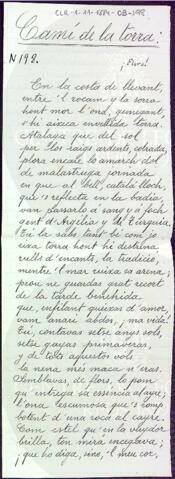 CLR-1-11-1884-OB-198
Camí de la torra:
Nº198.
¡Avui!
En la costa de llevant,
entre 'l rocam y la sorra
hont mor l'ond, gemegant,
s'hi aixeca envellida torra.
Atalaya que del sol
per los raigs ardents, colrada,
plora encare lo amarch dol
de malastruga jornada
en que al bell, català lloch,
que 's reflecta en la badía,
van
d'Argelia y de Turquía
Tú la saps, tant bé com jo
eixa torra hont hi destría
ulls d'encants, la tradició,
mentre 'l mar ruixa sa arena;
prou ne guardas grat recort
de la tarde benehida
que, enfilant quiexas d'amor,
vam anarhi abdos, ma vida!
Tú, contavas setse anys sols,
setse gayas primaveras,
y de tots aquestos vols
la nena més maca n' eras.
Semblavas, de flors, lo pom
qu' entrega sa essencia al ayre;
l'ona escumosa que 's romp
botent d'una roca al cayre.
Com estel qu' en la
brilla, ton mirá encegava;
que ho diga, sino, 'l meu cor,